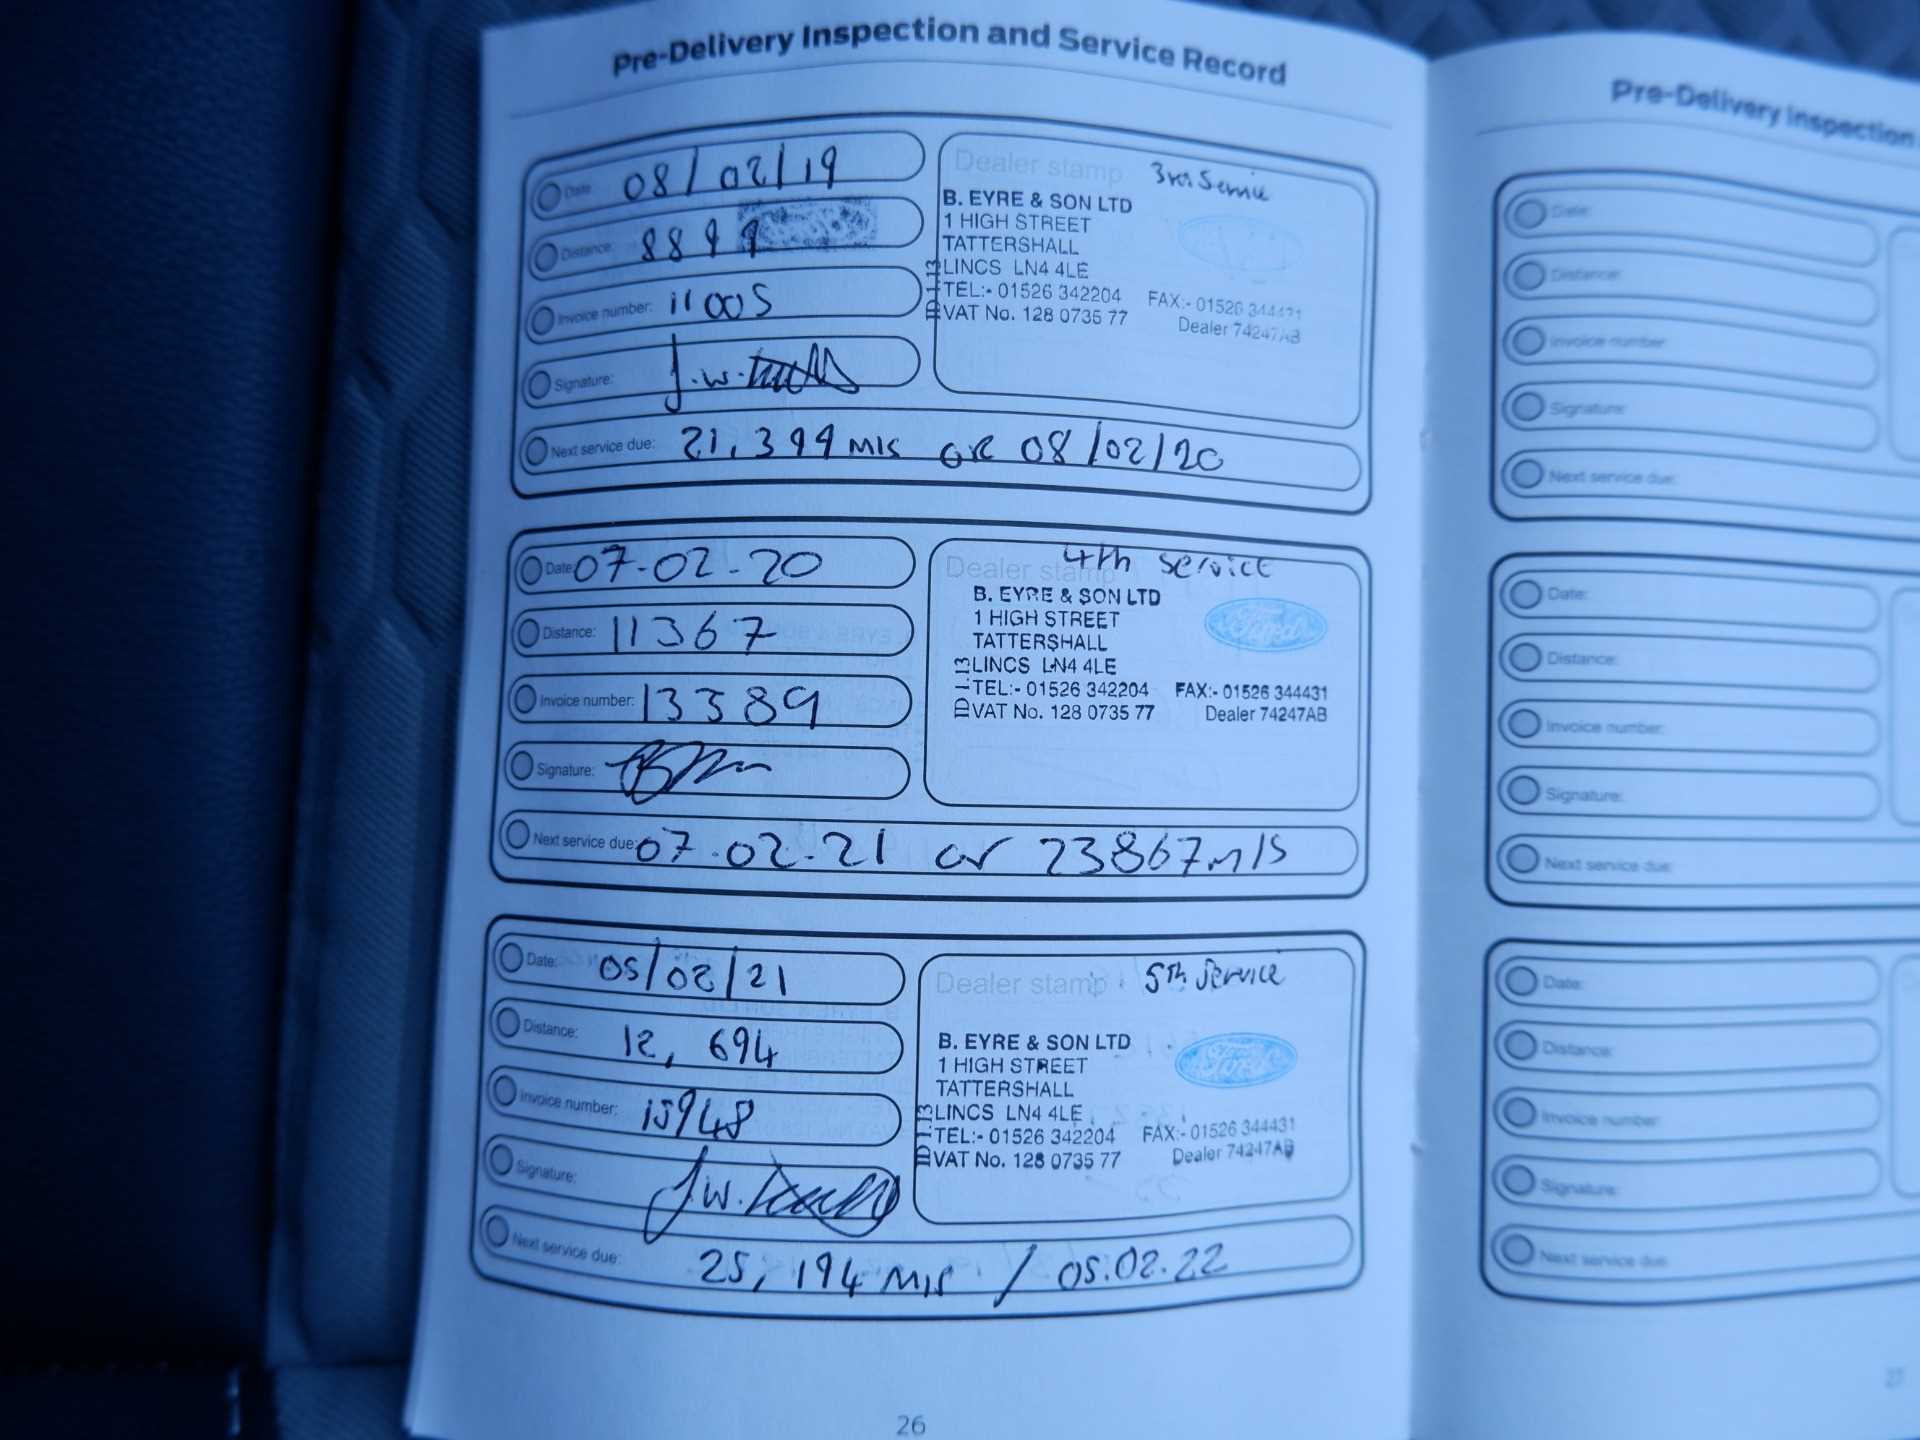 Pre-Delivery Inspection and Service Record
Date: 08/02/19
Distance: 8899
Invoice number: 11005
Signature:
Next service due: 21,399 MLS OR 08/02/20
Dealer stamp 3rd Service
B. EYRE & SON LTD
1 HIGH STREET
TATTERSHALL
LINCS LN4 4LE
TEL:- 01526 342204 FAX:- 01526 344431
VAT No. 128 0735 77 Dealer 74247AB
ID 1:13
Date: 07-02-20
Distance: 11367
Invoice number: 13389
Signature:
Next service due: 07.02.21 or 23867 mls
Dealer stamp 4th Service
B. EYRE & SON LTD
Ford
1 HIGH STREET
TATTERSHALL
LINCS LN4 4LE
TEL:- 01526 342204 FAX:- 01526 344431
VAT No. 128 0735 77 Dealer 74247AB
ID 1:13
Date: 05/02/21
Distance: 12,694
Invoice number: 15948
Signature:
Next service due: 25,194 MLS / 05.02.22
Dealer stamp 5th Service
B. EYRE & SON LTD
Ford
1 HIGH STREET
TATTERSHALL
LINCS LN4 4LE
TEL:- 01526 342204 FAX:- 01526 344431
VAT No. 128 0735 77 Dealer 74247AB
ID 1:13
26
Pre-Delivery Inspection
Date:
Distance:
Invoice number:
Signature:
Next service due:
Date:
Distance:
Invoice number:
Signature:
Next service due:
Date:
Distance:
Invoice number:
Signature:
Next service due:
27